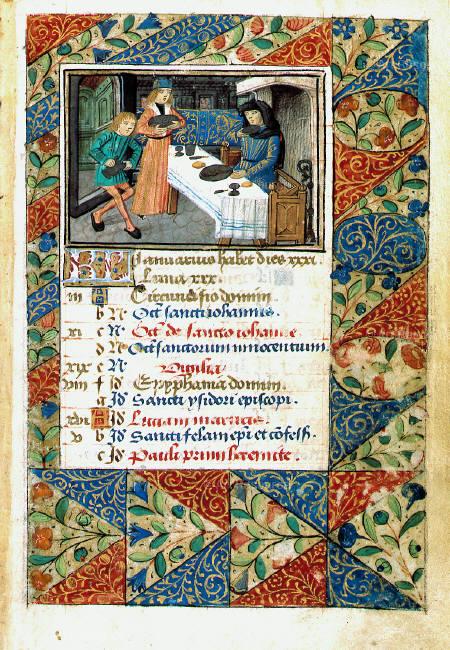 KL Januarius habet dies xxxi.
Luna xxx.
iii A Circuncisio domini.
b N Oct' sancti iohannis.
xi c N Oct' de sancto iohanne
d N Oct' sanctorum innocentum.
xix e N Vigilia
viii f Id Epyphania domini.
g Id Sancti ysidori episcopi.
xvi A Id Luciani martiris.
v b Id Sancti felani epi et cōfess.
c Id Pauli primi heremite.